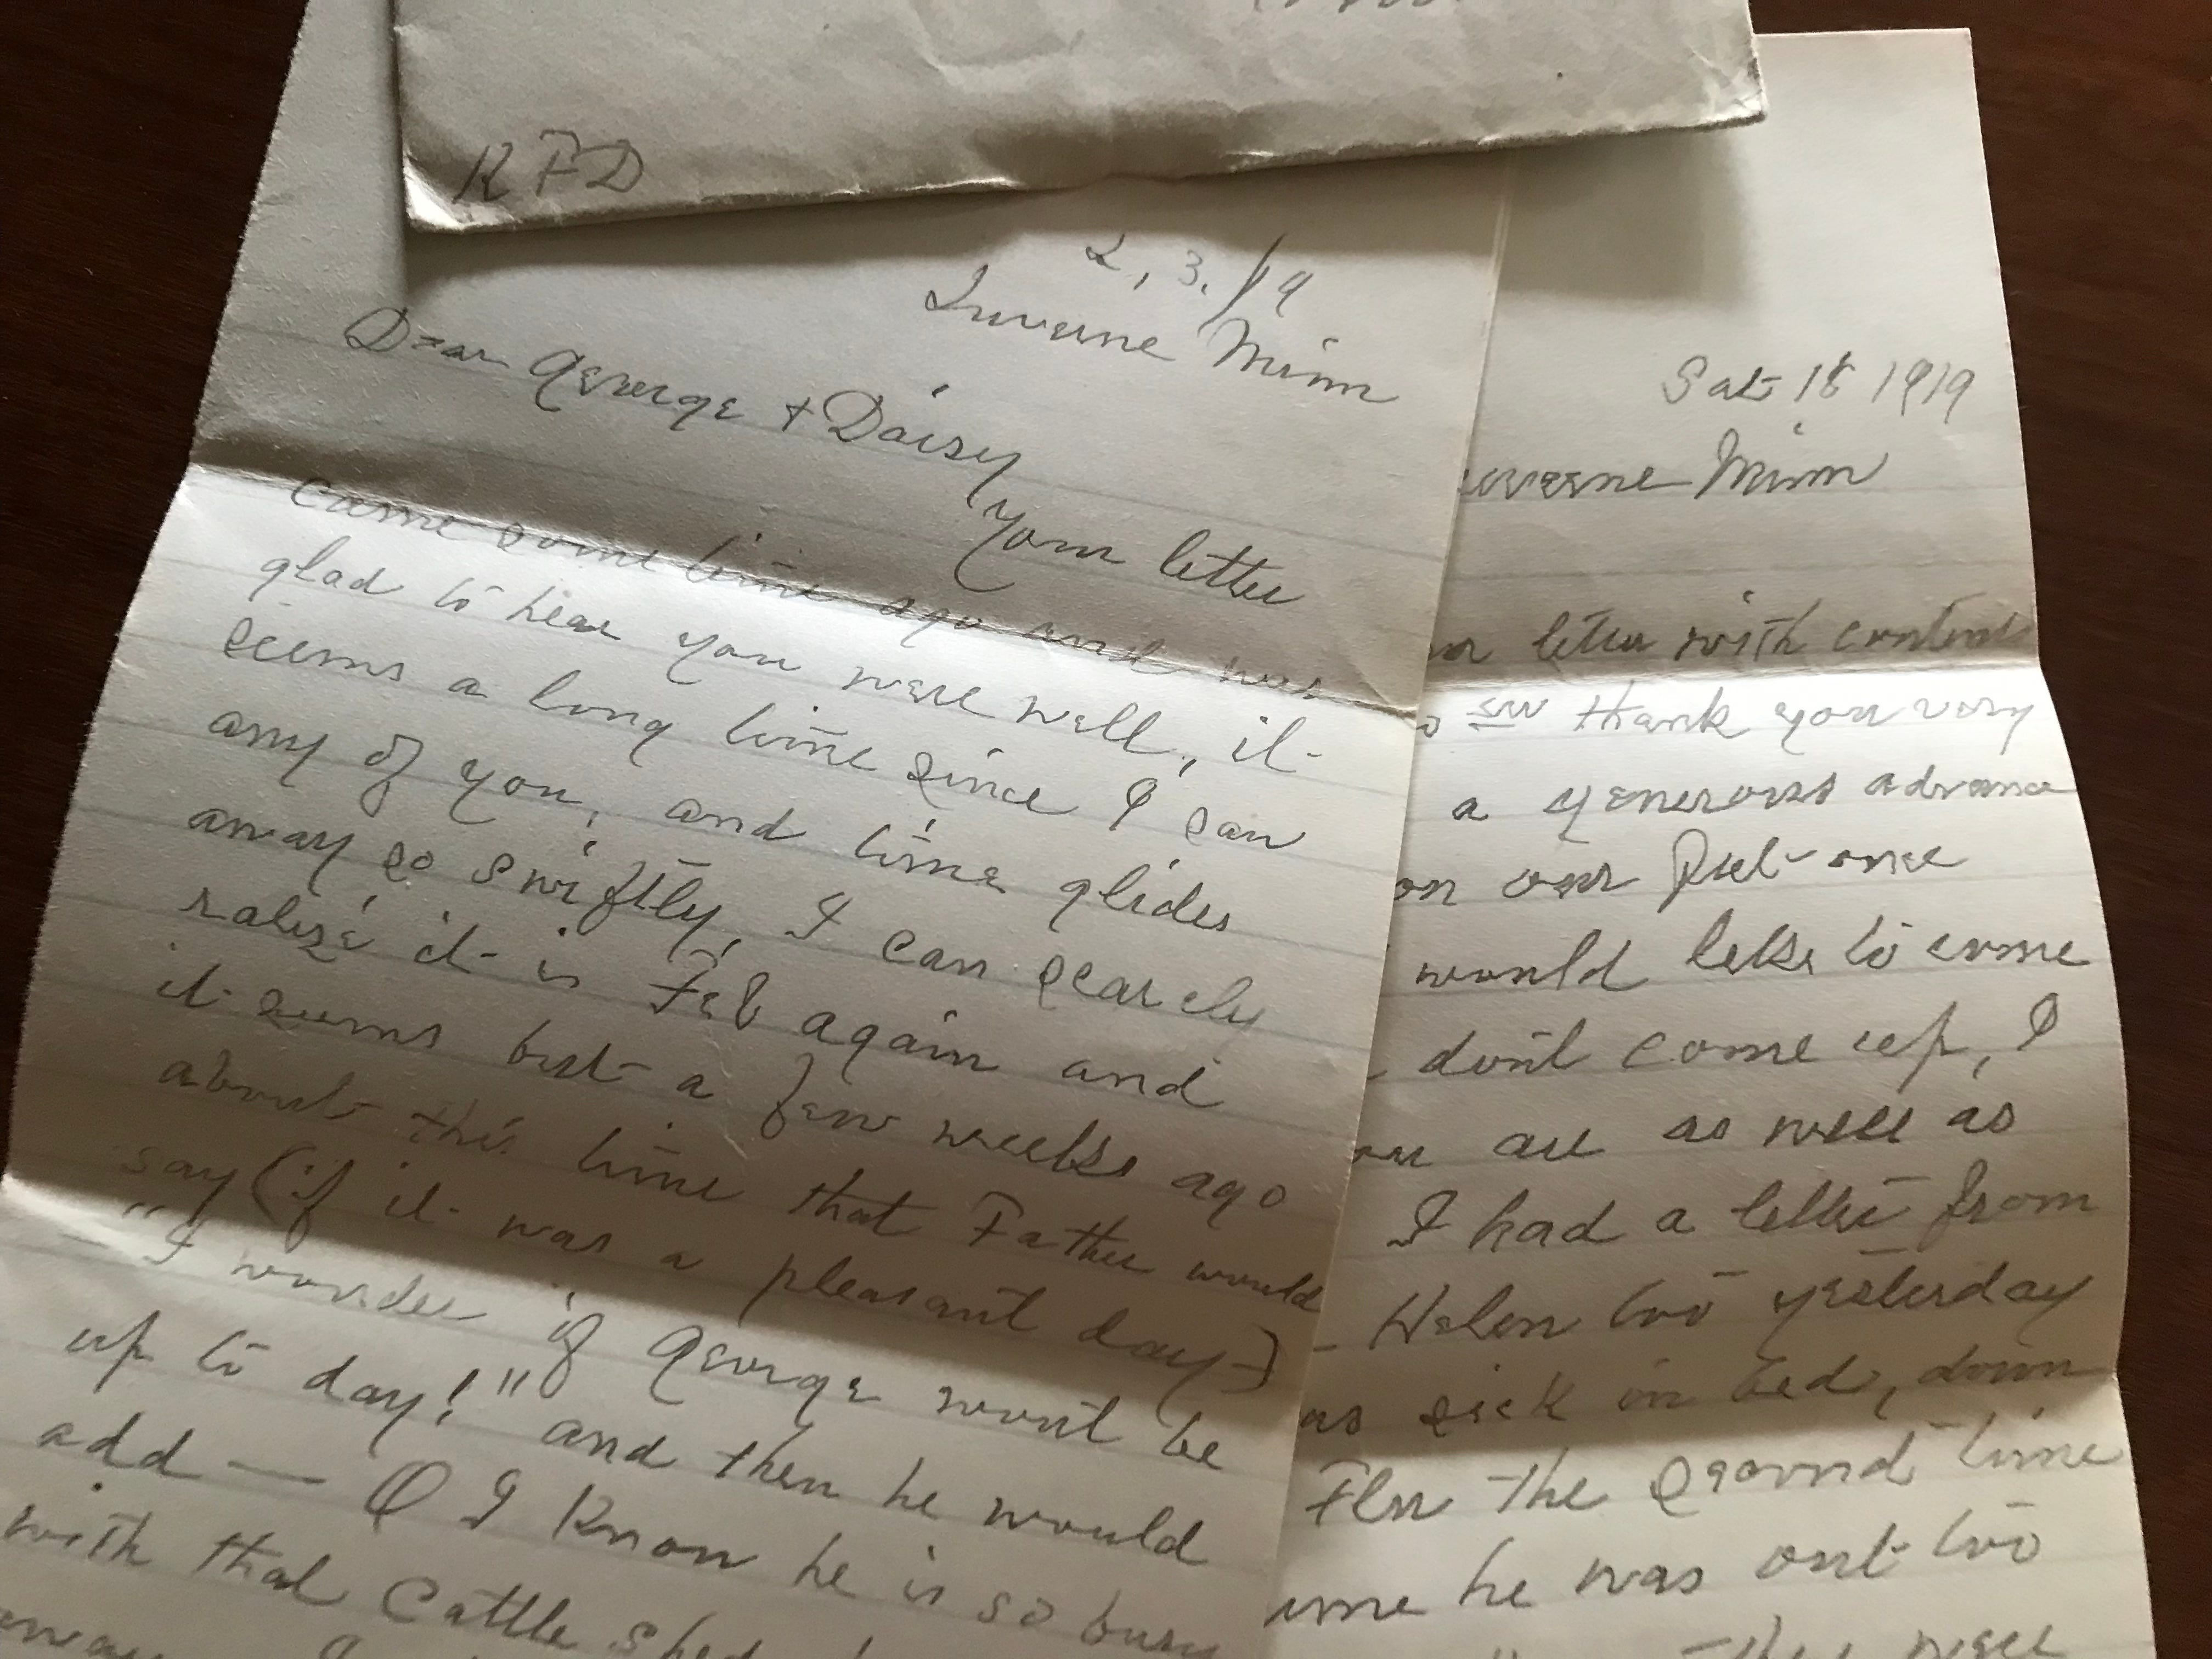 R F D
2, 3. /19
Luverne Minn
Dear George + Daisy
Your letter
came some time ago and was
glad to hear you were well, it
seems a long time since I saw
any of you, and time glides
away so swiftly, I can scarcely
ralize it is Feb again and
it seems but a few weeks ago
about this time that Father would
say (if it was a pleasant day)
"I wonder if George wont be
up to day!" and then he would
add — O I know he is so busy
with that Cattle shed
Sat 18 1919
uverne Minn
letter with contents
thank you very
a generous advance
on our
would like to come
dont come up, I
are as well as
I had a letter from
Helen too yesterday
as sick in bed, down
Flu the second time
ime he was out too